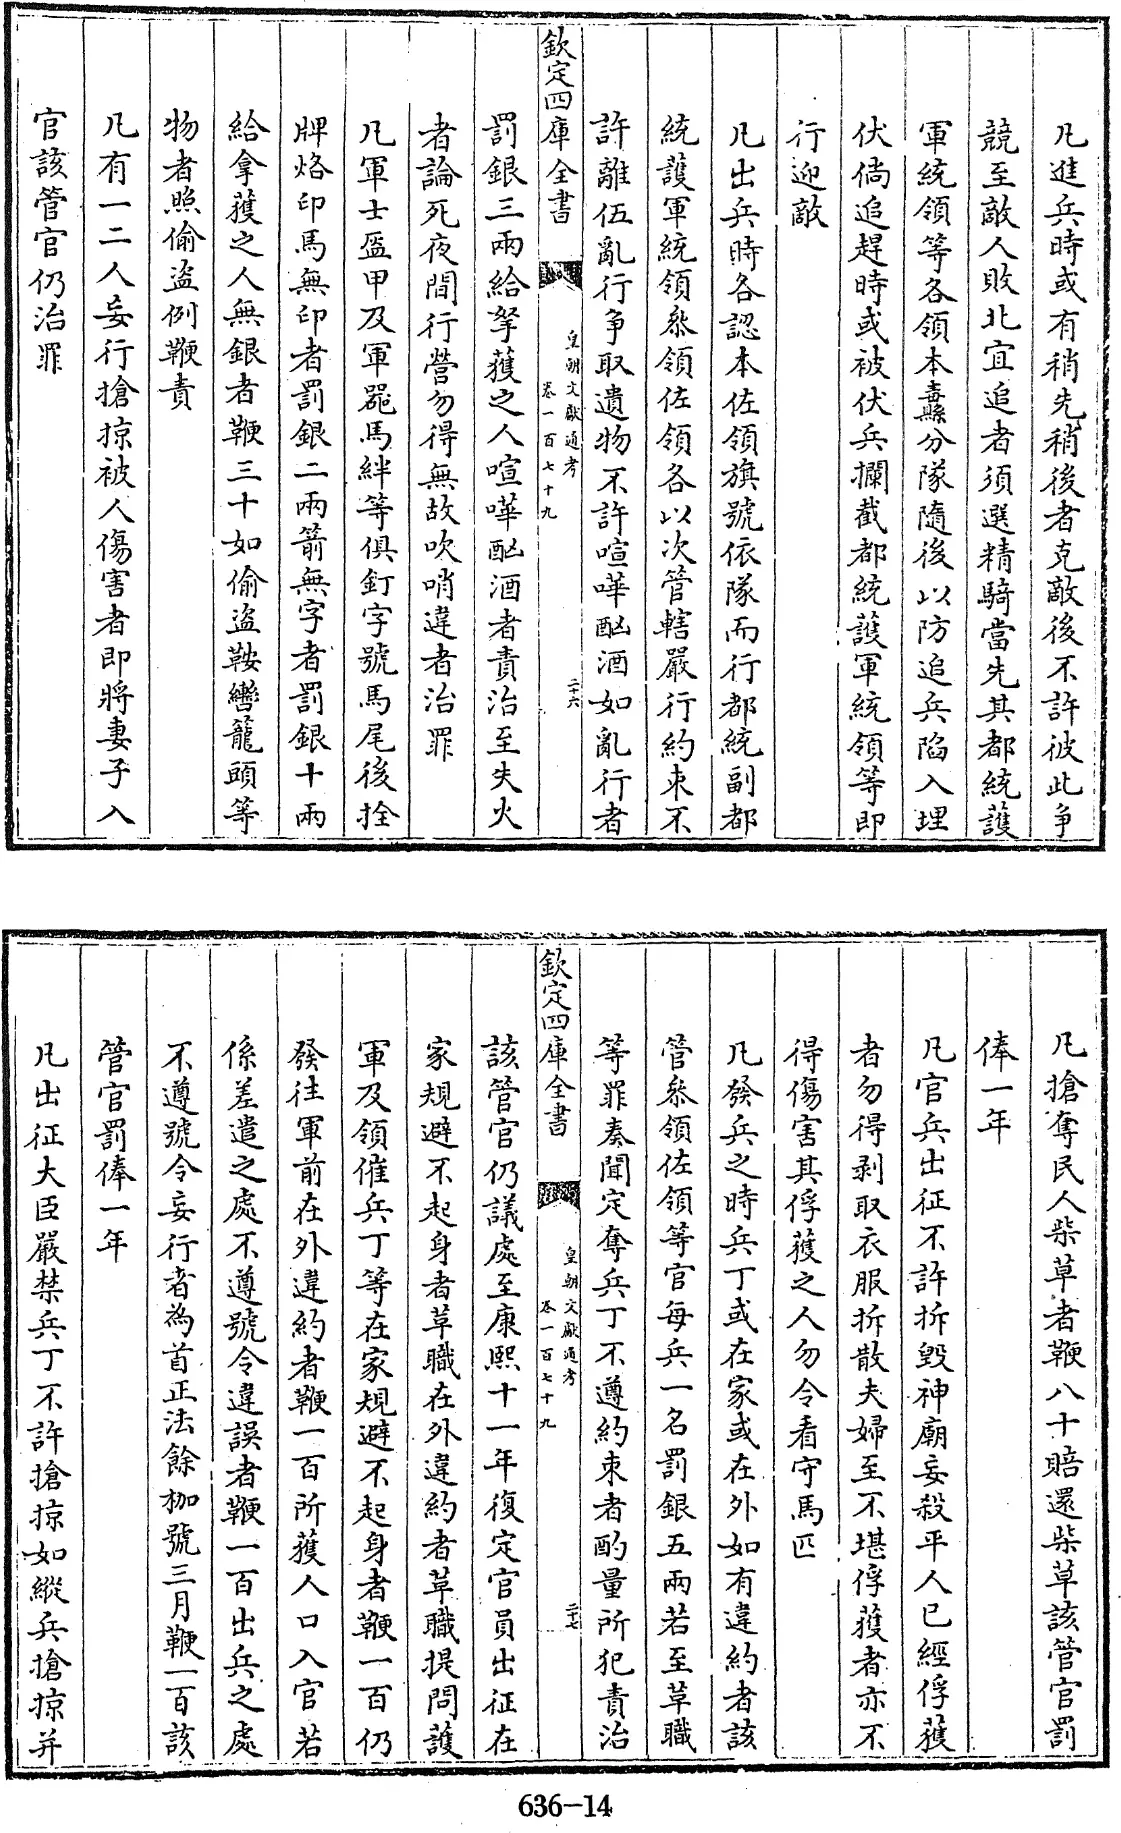 凡進兵時或有稍先稍後者克敵後不許彼此争
競至敵人敗北宜追者須選精騎當先其都統護
軍統領等各領本纛分隊隨後以防追兵陷入埋
伏倘追趕時或被伏兵攔截都統護軍統領等即
行迎敵
凡出兵時各認本佐領旗號依隊而行都統副都
統護軍統領叅領佐領各以次管轄嚴行約束不
許離伍亂行争取遺物不許喧嘩酗酒如亂行者
欽定四庫全書
皇朝文獻通考
卷一百七十九
二十六
罰銀三兩給拏獲之人喧嘩酗酒者責治至失火
者論死夜間行營勿得無故吹哨違者治罪
凡軍士盔甲及軍器馬絆等俱釘字號馬尾後拴
牌烙印馬無印者罰銀二兩箭無字者罰銀十兩
給拿獲之人無銀者鞭三十如偷盗鞍轡籠頭等
物者照偷盗例鞭責
凡有一二人妄行搶掠被人傷害者即將妻子入
官該管官仍治罪
凡搶奪民人柴草者鞭八十賠還柴草該管官罰
俸一年
凡官兵出征不許拆毀神廟妄殺平人已經俘獲
者勿得剥取衣服拆散夫婦至不堪俘獲者亦不
得傷害其俘獲之人勿令看守馬匹
凡發兵之時兵丁或在家或在外如有違約者該
管叅領佐領等官每兵一名罰銀五兩若至革職
等罪奏聞定奪兵丁不遵約束者酌量所犯責治
欽定四庫全書
皇朝文獻通考
卷一百七十九
二十七
該管官仍議處至康熙十一年復定官員出征在
家規避不起身者革職在外違約者革職提問護
軍及領催兵丁等在家規避不起身者鞭一百仍
發往軍前在外違約者鞭一百所獲人口入官若
係差遣之處不遵號令違誤者鞭一百出兵之處
不遵號令妄行者為首正法餘枷號三月鞭一百該
管官罰俸一年
凡出征大臣嚴禁兵丁不許搶掠如縱兵搶掠并
636-14